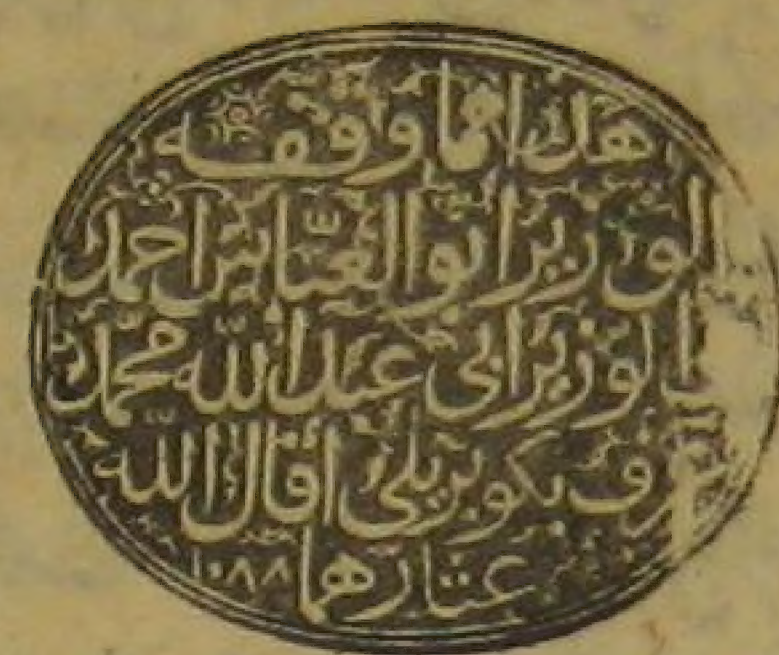 هذا مما وقفه
الوزير ابو العباس احمد
ابن الوزير ابى عبد الله محمد
عرف بكوبريلى اقال الله
عثارهما ١٠٨٨